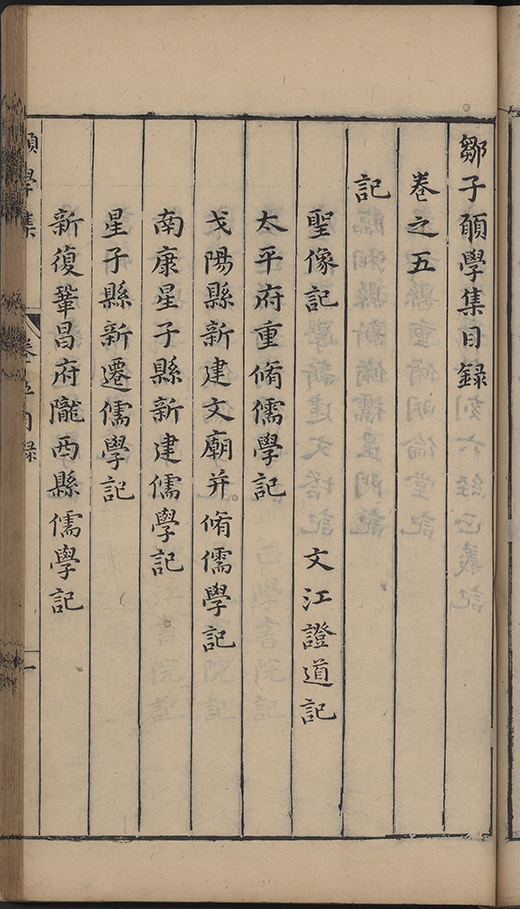 鄒子願學集目錄
卷之五
記
聖像記 文江證道記
太平府重脩儒學記
戈陽縣新建文廟并脩儒學記
南康星子縣新建儒學記
星子縣新遷儒學記
新復鞏昌府隴西縣儒學記
願學集 卷五目錄 一